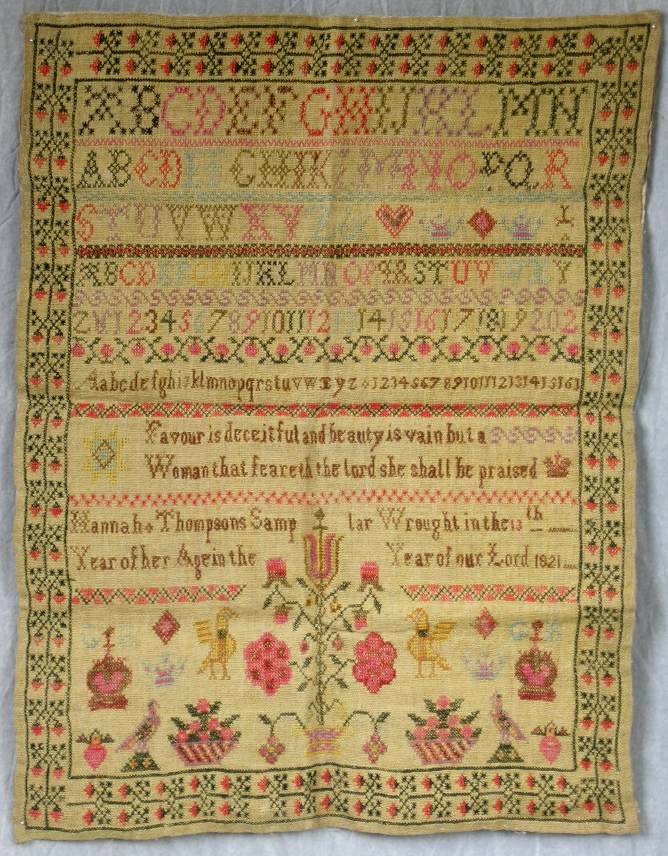 ABCDEFGHIJKLMN
ABCDEFGHIKLMNOPQR
STUVWXYZ
ABCDEFGHIJKLMNOPQRSTUV Y
Z 1 2 3 4 5 6 7 8 9 10 11 12 14 15 16 17 18 19 20 2
Aabcdefghijklmnopqrstuvwxyz 1 2 3 4 5 6 7 8 9 10 11 12 13 14 15 16 1
Favour is deceitful and beauty is vain but a
Woman that feareth the lord she shall be praised
Hannah Thompsons Samp lar Wrought in the 13th
Year of her Age in the Year of our Lord 1821